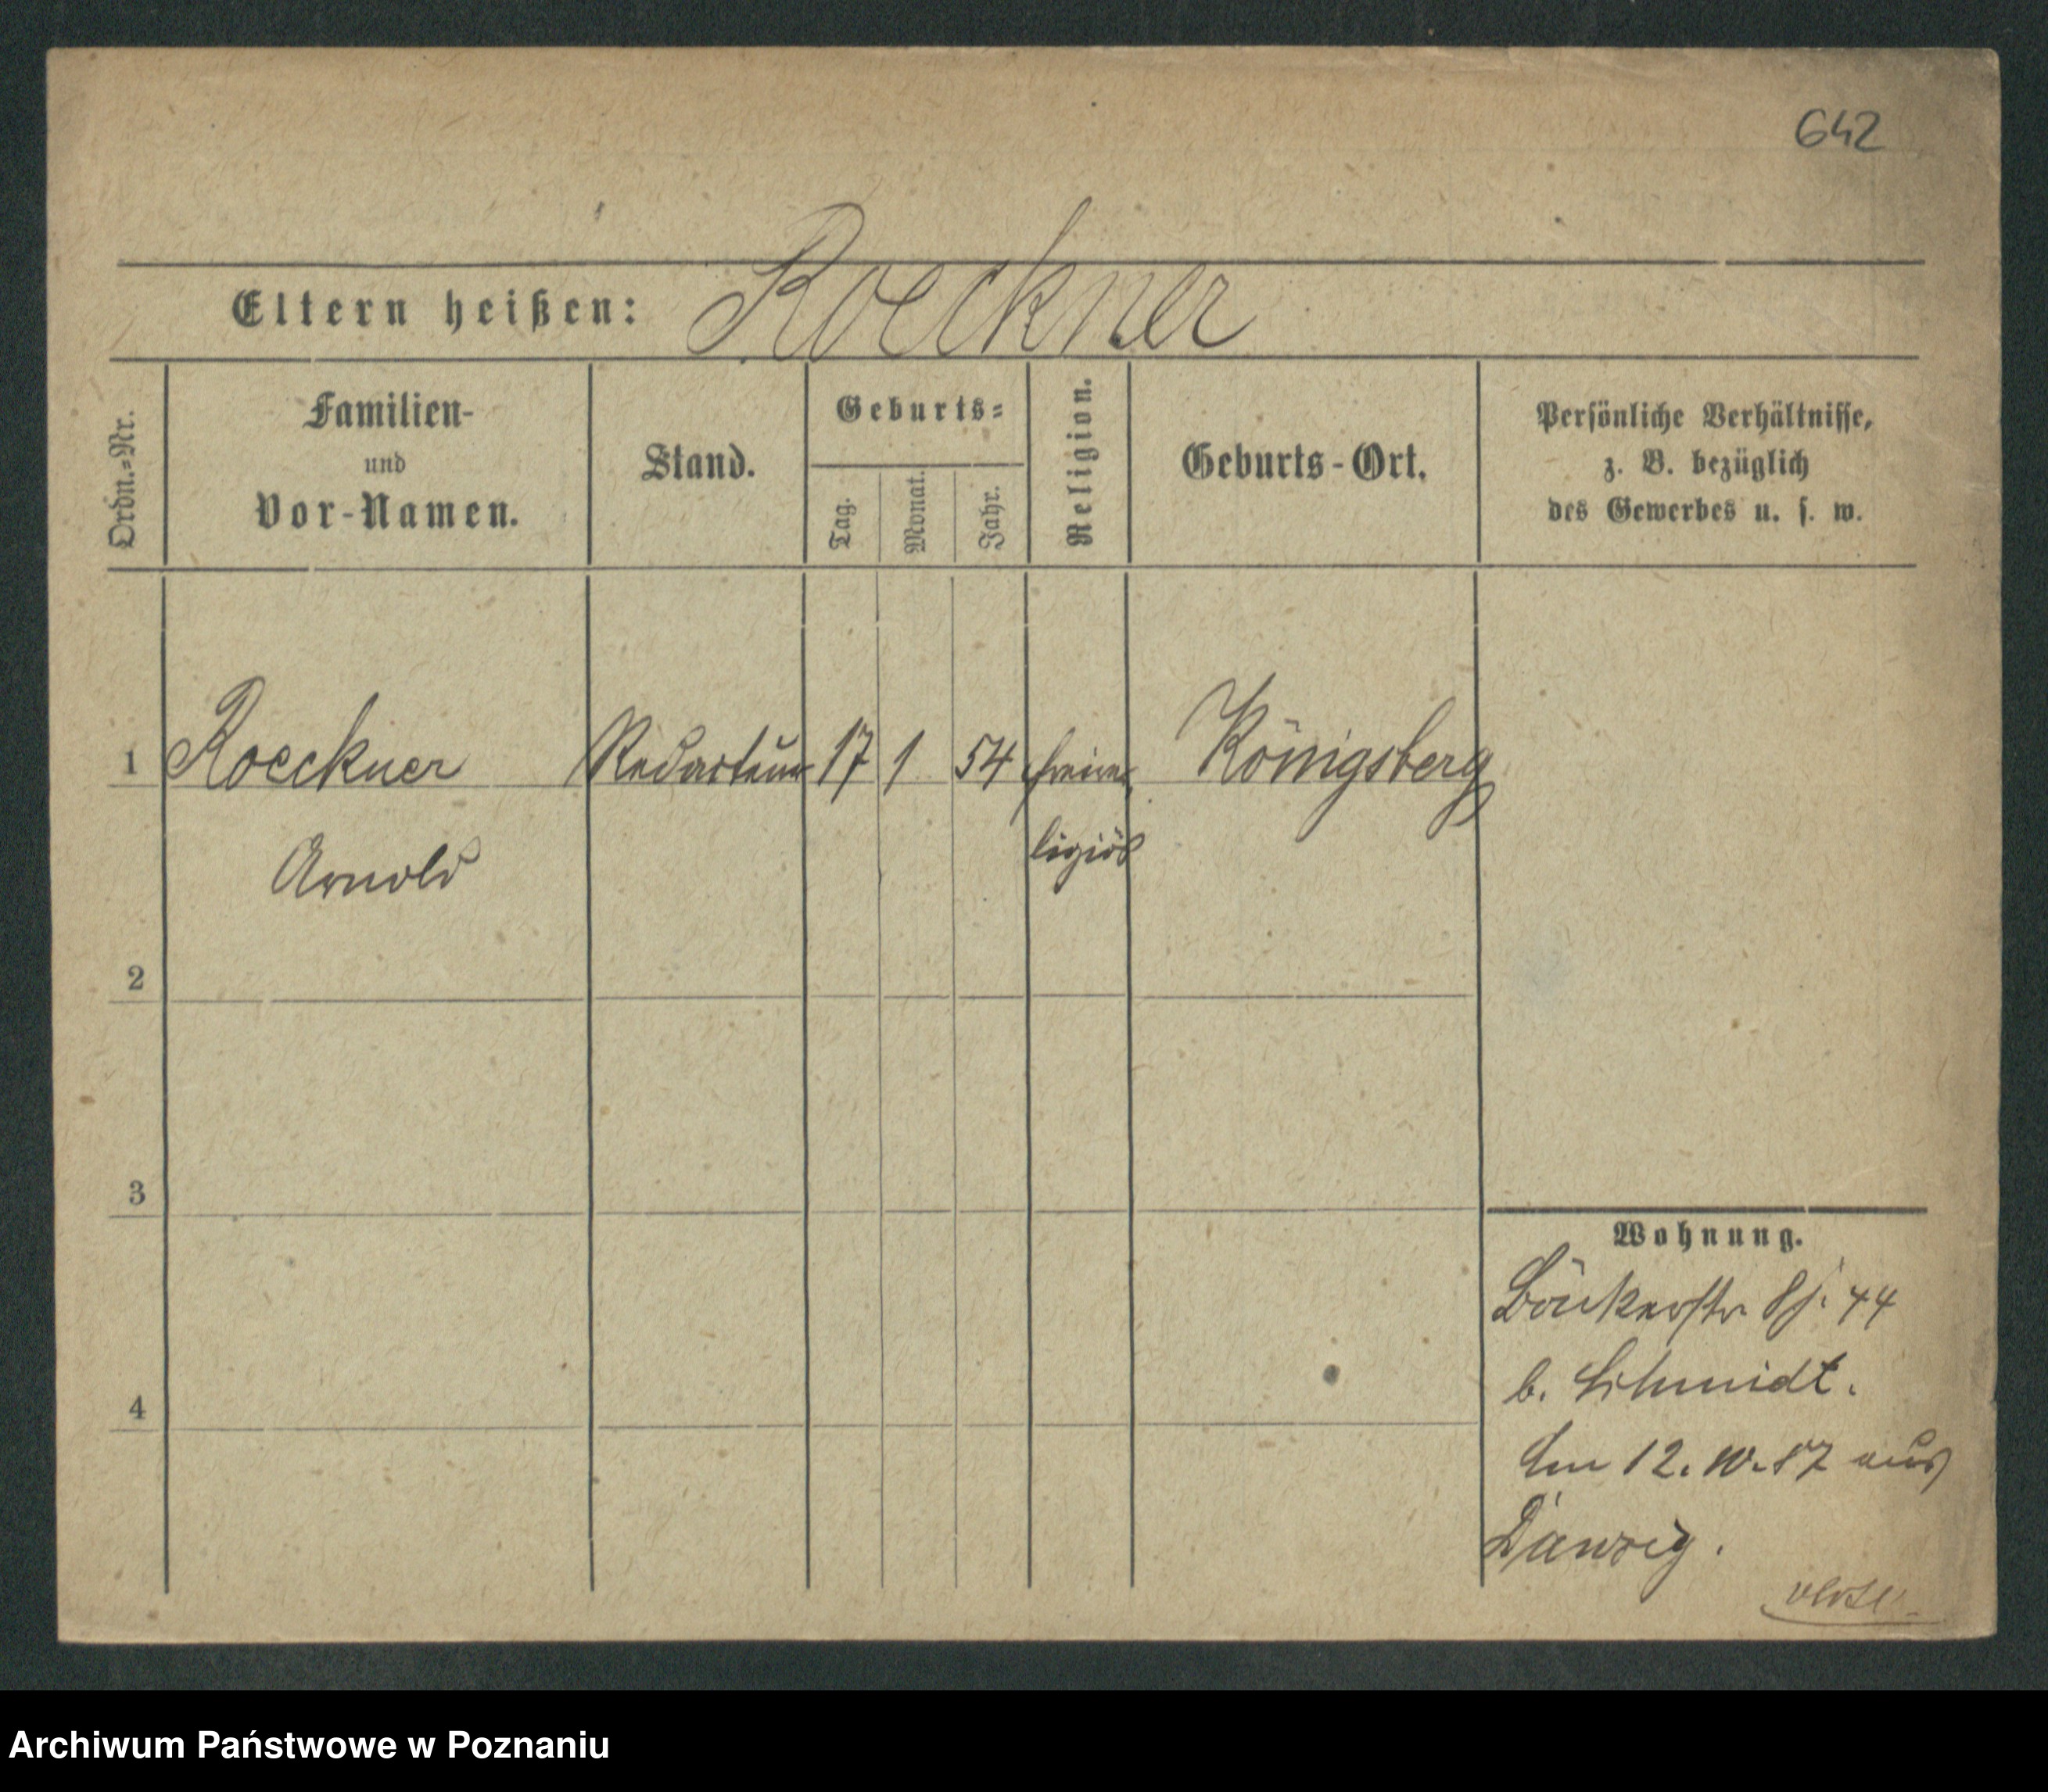 642
Eltern heißen: Roeckner
Ordn.=Nr.
Familien-
und
Vor-Namen.
Stand.
Geburts=
Tag.
Monat.
Jahr.
Religion.
Geburts-Ort.
Persönliche Verhältnisse,
z. B. bezüglich
des Gewerbes u. s. w.
1 Roeckner Redacteur 17 1 54 freire Königsberg
Arnold ligiös
2
3
4
Wohnung.
44
b. Schmidt.
Am 12. 10. 87 aus
Danzig.
Archiwum Państwowe w Poznaniu